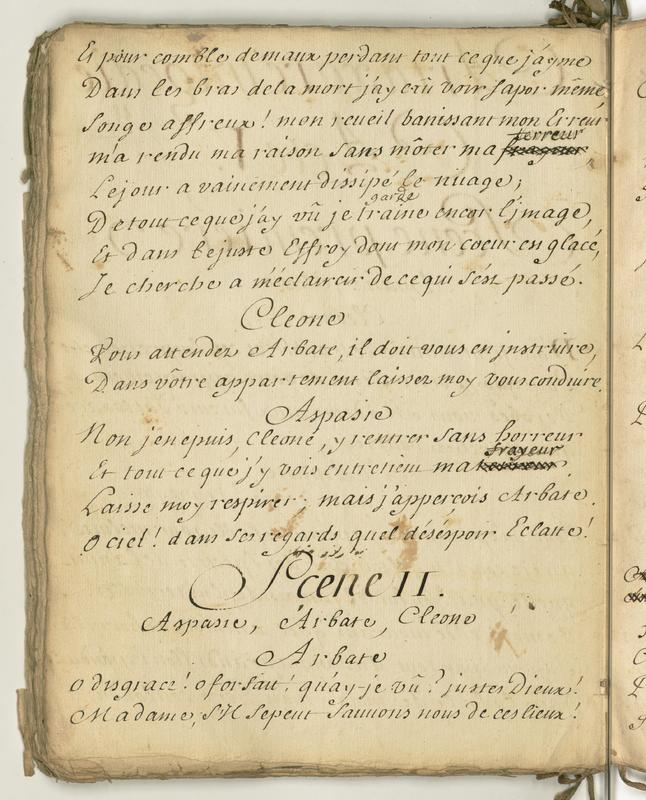 Et pour comble de maux perdant tout ce que j'ayme
Dans les bras de la mort j'ay crû voir Sapor même,
Songe affreux! mon reveil banissant mon Erreur
terreur
m'a rendu ma raison sans môter ma frayeur
Le jour a vainement dissipé le nuage;
garde
De tout ce que j'ay vû je traine encor l'image,
Et dans le juste Effroy dont mon coeur en glacé,
Je cherche a m'éclaircir de ce qui s'ést passé.
Cleone
Vous attendez Arbate, il doit vous en jnstruire,
Dans vôtre appartement laissez moy vous conduire.
Aspasie
Non je ne puis, Cleone, y rentrer sans horreur
frayeur
Et tout ce que j'y vois entretient ma terreur.
Laisse moy respirer; mais j'apperçois Arbate.
O ciel! dans ses regards quel désespoir Eclatte!
Scéne II.
Aspasie, Arbate, Cleone
Arbate
O disgrace! O forfait! qu'ay-je vû? justes Dieux!
Madame, s'Il se peut sauvons nous de ces lieux!